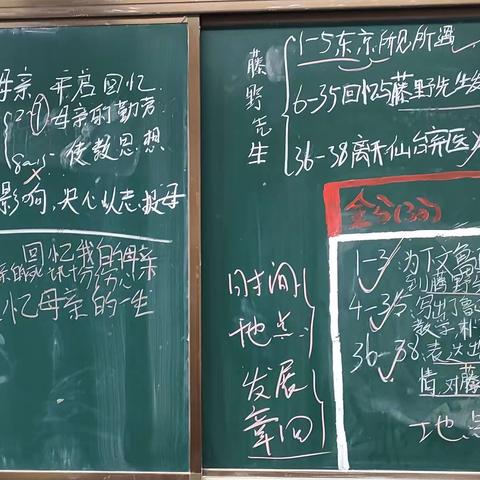 母亲 开启回忆
母亲的勤劳
使教思想
影响,决心以志报母
回忆我的母亲
忆母亲的一生
藤野先生
1-5东京所见所遇
6-35回忆与藤野先生
36-38离开仙台弃医
全分(3分)
1-3 为下文
到藤野
4-35,写出了
教学
36-38,表达出
情,对藤
地点
时间
地点
发展
章回